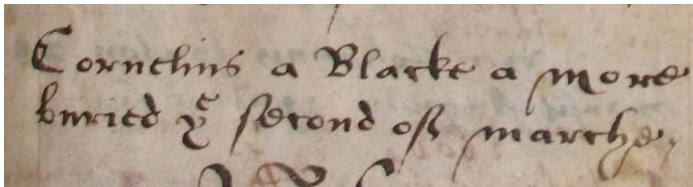 Cornelius a Blacke a more
buried yͤ second of marche,